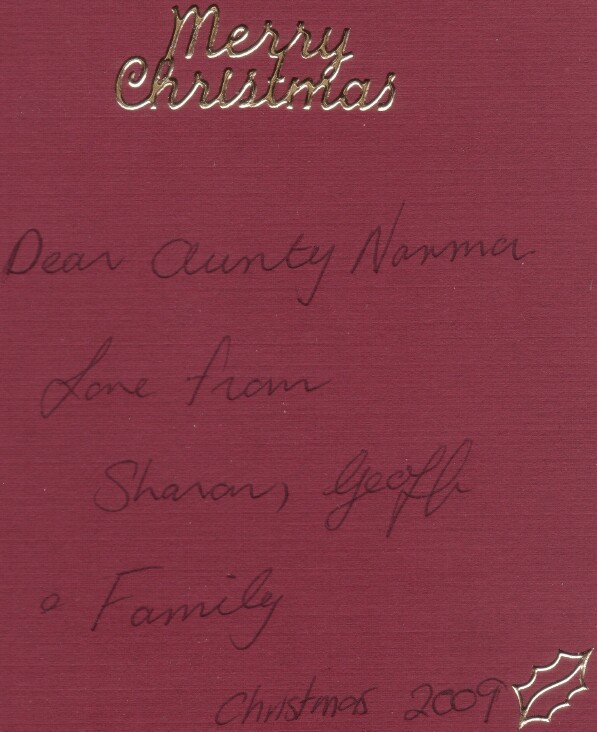 Merry
Christmas
Dear Aunty Norma
Love from
Sharon, Geoff
& Family
Christmas 2009